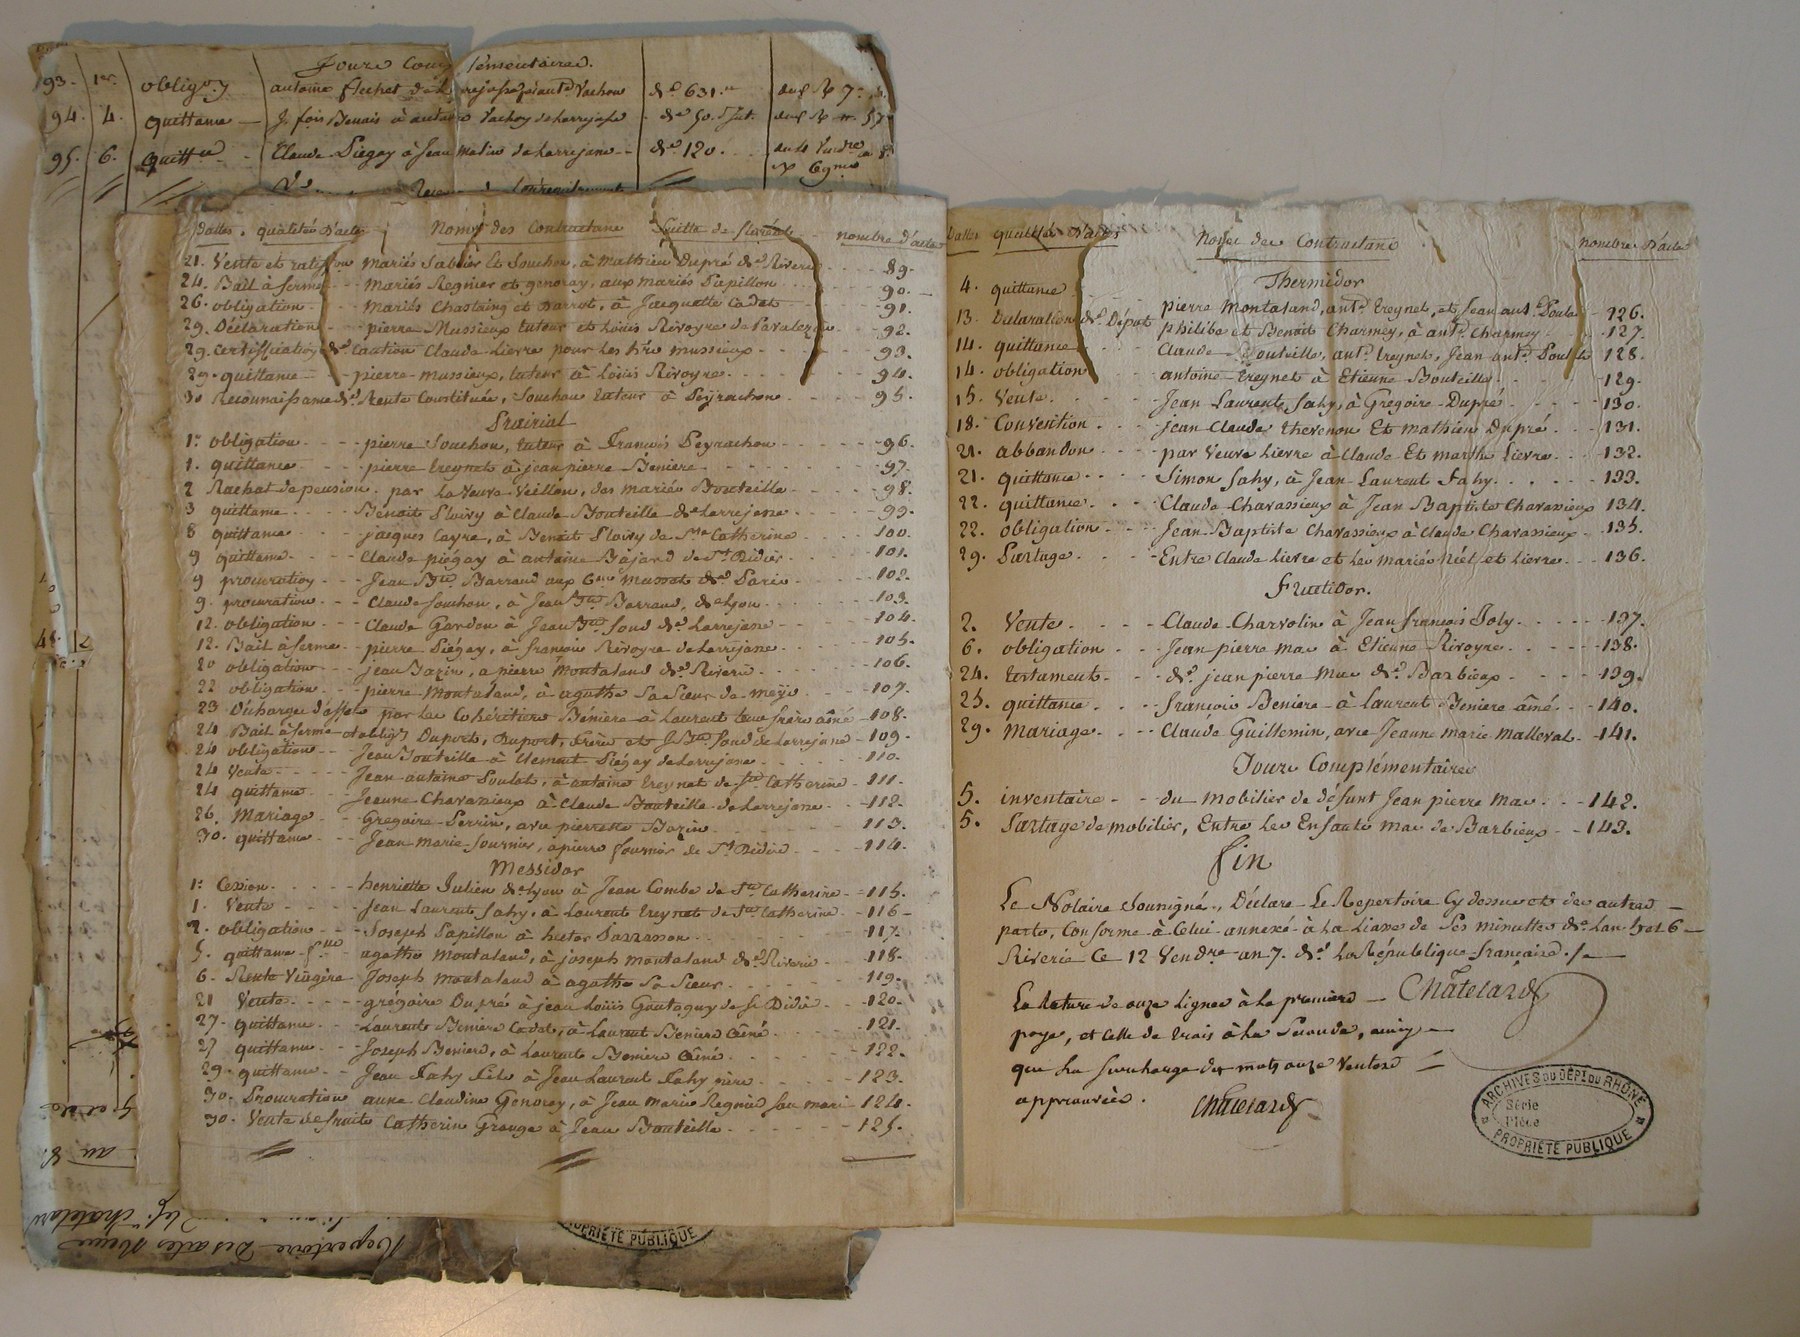 Jours Complementaires.
93. 1er. oblig.on antoine flechet de Larrajasse à ant.e Vachon de 631.
94. 4. quittance J. fois Benais à antoine Vachon de Larrajasse de 50.
95. 6. quitt.ce Claude Piegay à Jean de Larrajasse de 120.
Dattes. qualités d'actes Noms des Contractans Suitte de floréal nombre d'actes
21. Vente et ratif.on mariés Sablier et Souchon, à Mathieu Dupré de Riverie 89.
24. Bail à ferme mariés Regnier et genoray, aux mariés Papillon 90.
26. obligation mariés Chastaing et Barrot, à Jacquette Cadet 91.
29. Déclaration pierre Mussieux tuteur et Louis Rivoyre de 92.
29. Certiffication de Caution Claude Lierre pour les mussieux 93.
29. quittance pierre mussieux, tuteur à Louis Rivoyre 94.
30 Reconnaissance de Rente Constituée, Souchon tuteur à Peyrachon 95.
Prairial
1. obligation pierre Souchon, tuteur à François Peyrachon 96.
1. quittance pierre Treynet à jean pierre Beniere 97.
2 Rachat de pension par la Veuve Veillon, des mariés Bouteille 98.
3 quittance Benoit Ploivy à Claude Bouteille de Larrajasse 99.
8 quittance jacques Cayre, à Benoit Ploivy de S.te Catherine 100.
9 quittance Claude piégay à antoine Bajard de St. Didier 101.
9 procuration Jean B.te Barraud aux C.ens mussot de Paris 102.
9. procuration Claude Souchon, à Jean B.te Barraud, de Lyon 103.
12. obligation Claude Gardon à Jean B.te fond de Larrajasse 104.
12. Bail à ferme pierre Piégay, à françois Rivoyre de Larrajasse 105.
20 obligation jean Bazin, a pierre Montaland de Riverie 106.
22 obligation pierre Montaland, à agathe Sa Sœur de meÿs 107.
23 Décharge d'effets par les Cohéritiers Bénière à Laurent leur frère aîné 108.
24 Bail à ferme et oblig.on Duport, Duport, frère et J. B.te fond de Larrajasse 109.
24 obligation Jean Bouteille à Clement Piégay de Larrajasse 110.
24 Vente Jean antoine Poulat, à antoine Treynet de S.te Catherine 111.
24 quittance Jeanne Charassieux à Claude Bouteille de Larrajasse 112.
26. Mariage Gregoire Perrin, avec pierrette Bazin 113.
30. quittance Jean-marie fournier, à pierre fournier de St. Didier 114.
Messidor
1. Cession henriette Julien de Lyon à Jean Combe de S.te Catherine 115.
1. Vente Jean Laurent fahy, à Laurent Treynet de S.te Catherine 116
2. obligation Joseph Papillon à hector Sarrasson 117.
5. quittance agathe Montaland, à joseph montaland de Riverie 118.
6. Rente Viagère Joseph montaland à agathe Sa Sœur 119.
21 Vente grégoire Dupré à jean Louis Goutagny de St Didier 120.
27. quittance Laurent Beniere Cadet, à Laurent Beniere Aîné 121.
27 quittance Joseph Beniere, à Laurent Beniere Aîné 122.
29. quittance Jean Fahy fils à Jean Laurent Fahy père 123.
30. Procuration anne Claudine Genoray, à Jean Marie Regnier Son mari 124.
30. Vente de fruits Catherin Grange à Jean Bouteille 125.
Dattes qualités d'actes Noms des Contractans nombre d'actes
Thermidor
4. quittance pierre Montaland, ant.e Treynet, et Jean ant.e Poulat 126.
13. Déclaration de Dépot philibe et Benoit Charmey, à ant.e Charmey 127.
14. quittance Claude Bouteille, ant.e Treynet, Jean ant.e Poulat 128.
14. obligation antoine Treynet à Etienne Bouteille 129.
15. Vente Jean Laurent fahy, à Grégoire Dupré 130.
18. Convention Jean Claude thevenon Et mathieu Dupré 131.
21. abbandon par Veuve Lierre à Claude Et marthe Lierre 132.
21. quittance Simon fahy, à Jean Laurent Fahy 133.
22. quittance Claude Charassieux à Jean Baptiste Charassieux 134.
22. obligation Jean Baptiste Charassieux à Claude Charassieux 135.
29. Partage Entre Claude Lierre et les mariés Niel et Lierre 136.
Fructidor.
2. Vente Claude Charvolin à Jean françois Joly 137.
6. obligation Jean pierre mac à Etienne Rivoyre 138.
24. testament de jean pierre Mac de Barbieux 139.
25. quittance françois Beniere à laurent Beniere âiné 140.
29. Mariage Claude Guillemin, avec Jeanne marie malleval 141.
Jours Complémentaires
5. inventaire du mobilier de défunt Jean pierre Mac 142.
5. Partage de mobilier, Entre les Enfants mac de Barbieux 143.
fin
Le Notaire Soussigné, Déclare Le Repertoire Cy dessus et des autres
parts, Conforme à Celui annexé à La Liasse de Ses minuttes de Lan 5 et 6
Riverie Ce 12 Vend.re an 7. de La République française ./.
La rature de onze Lignes à La premiere
page, et Celle de trois à La Seconde, ainsy
que La Surcharge des mots onze Ventose
approuvées.
Chatelard
Chatelard
ARCHIVES DU DÉPT DU RHÔNE
Série
Pièce
PROPRIÉTÉ PUBLIQUE
PROPRIÉTÉ PUBLIQUE
Repertoire Des actes Reçus
Chatelard